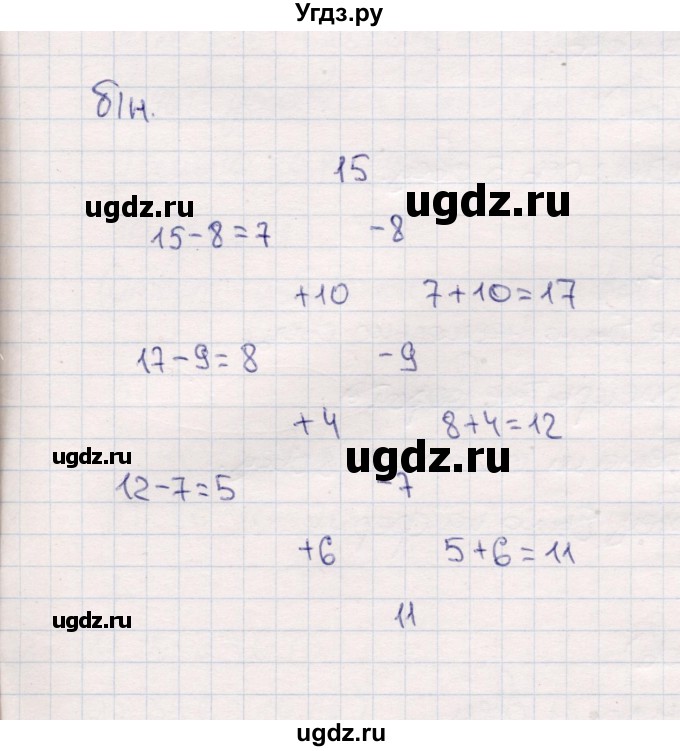 Угдз.ру
б/н.
15
ugdz.ru ugdz.ru
15-8=7 -8
+10 7+10=17
17-9=8 -9
+4 8+4=12
ugdz.ru ugdz.ru
12-7=5 -7
+6 5+6=11
11
ugdz.ru ugdz.ru
ugdz.ru